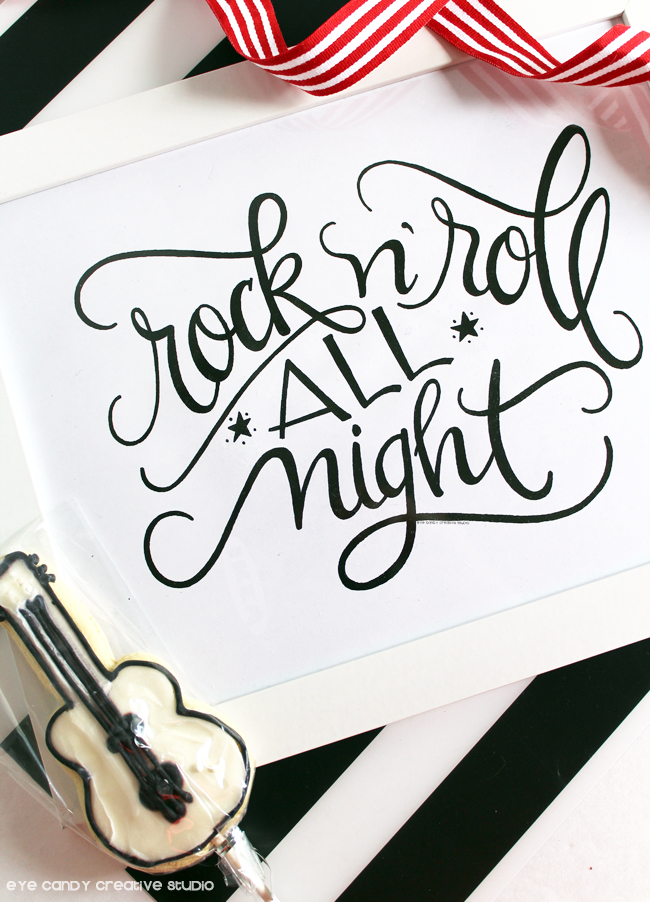 rock n' roll
ALL
night
eye candy creative studio
EYE CANDY CREATIVE STUDIO